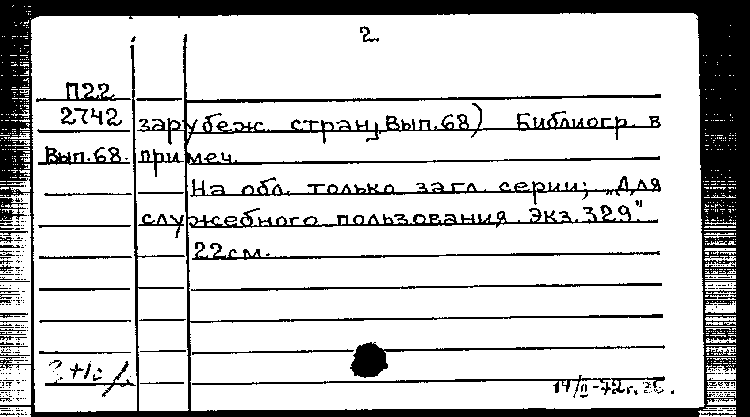 2.
П22
2742 зарубеж. стран, Вып.68) Библиогр. в
Вып.68. примеч.
На обл. только загл. серии; „Для
служебного пользования. Экз. 329."
22см.
14/II-72г.